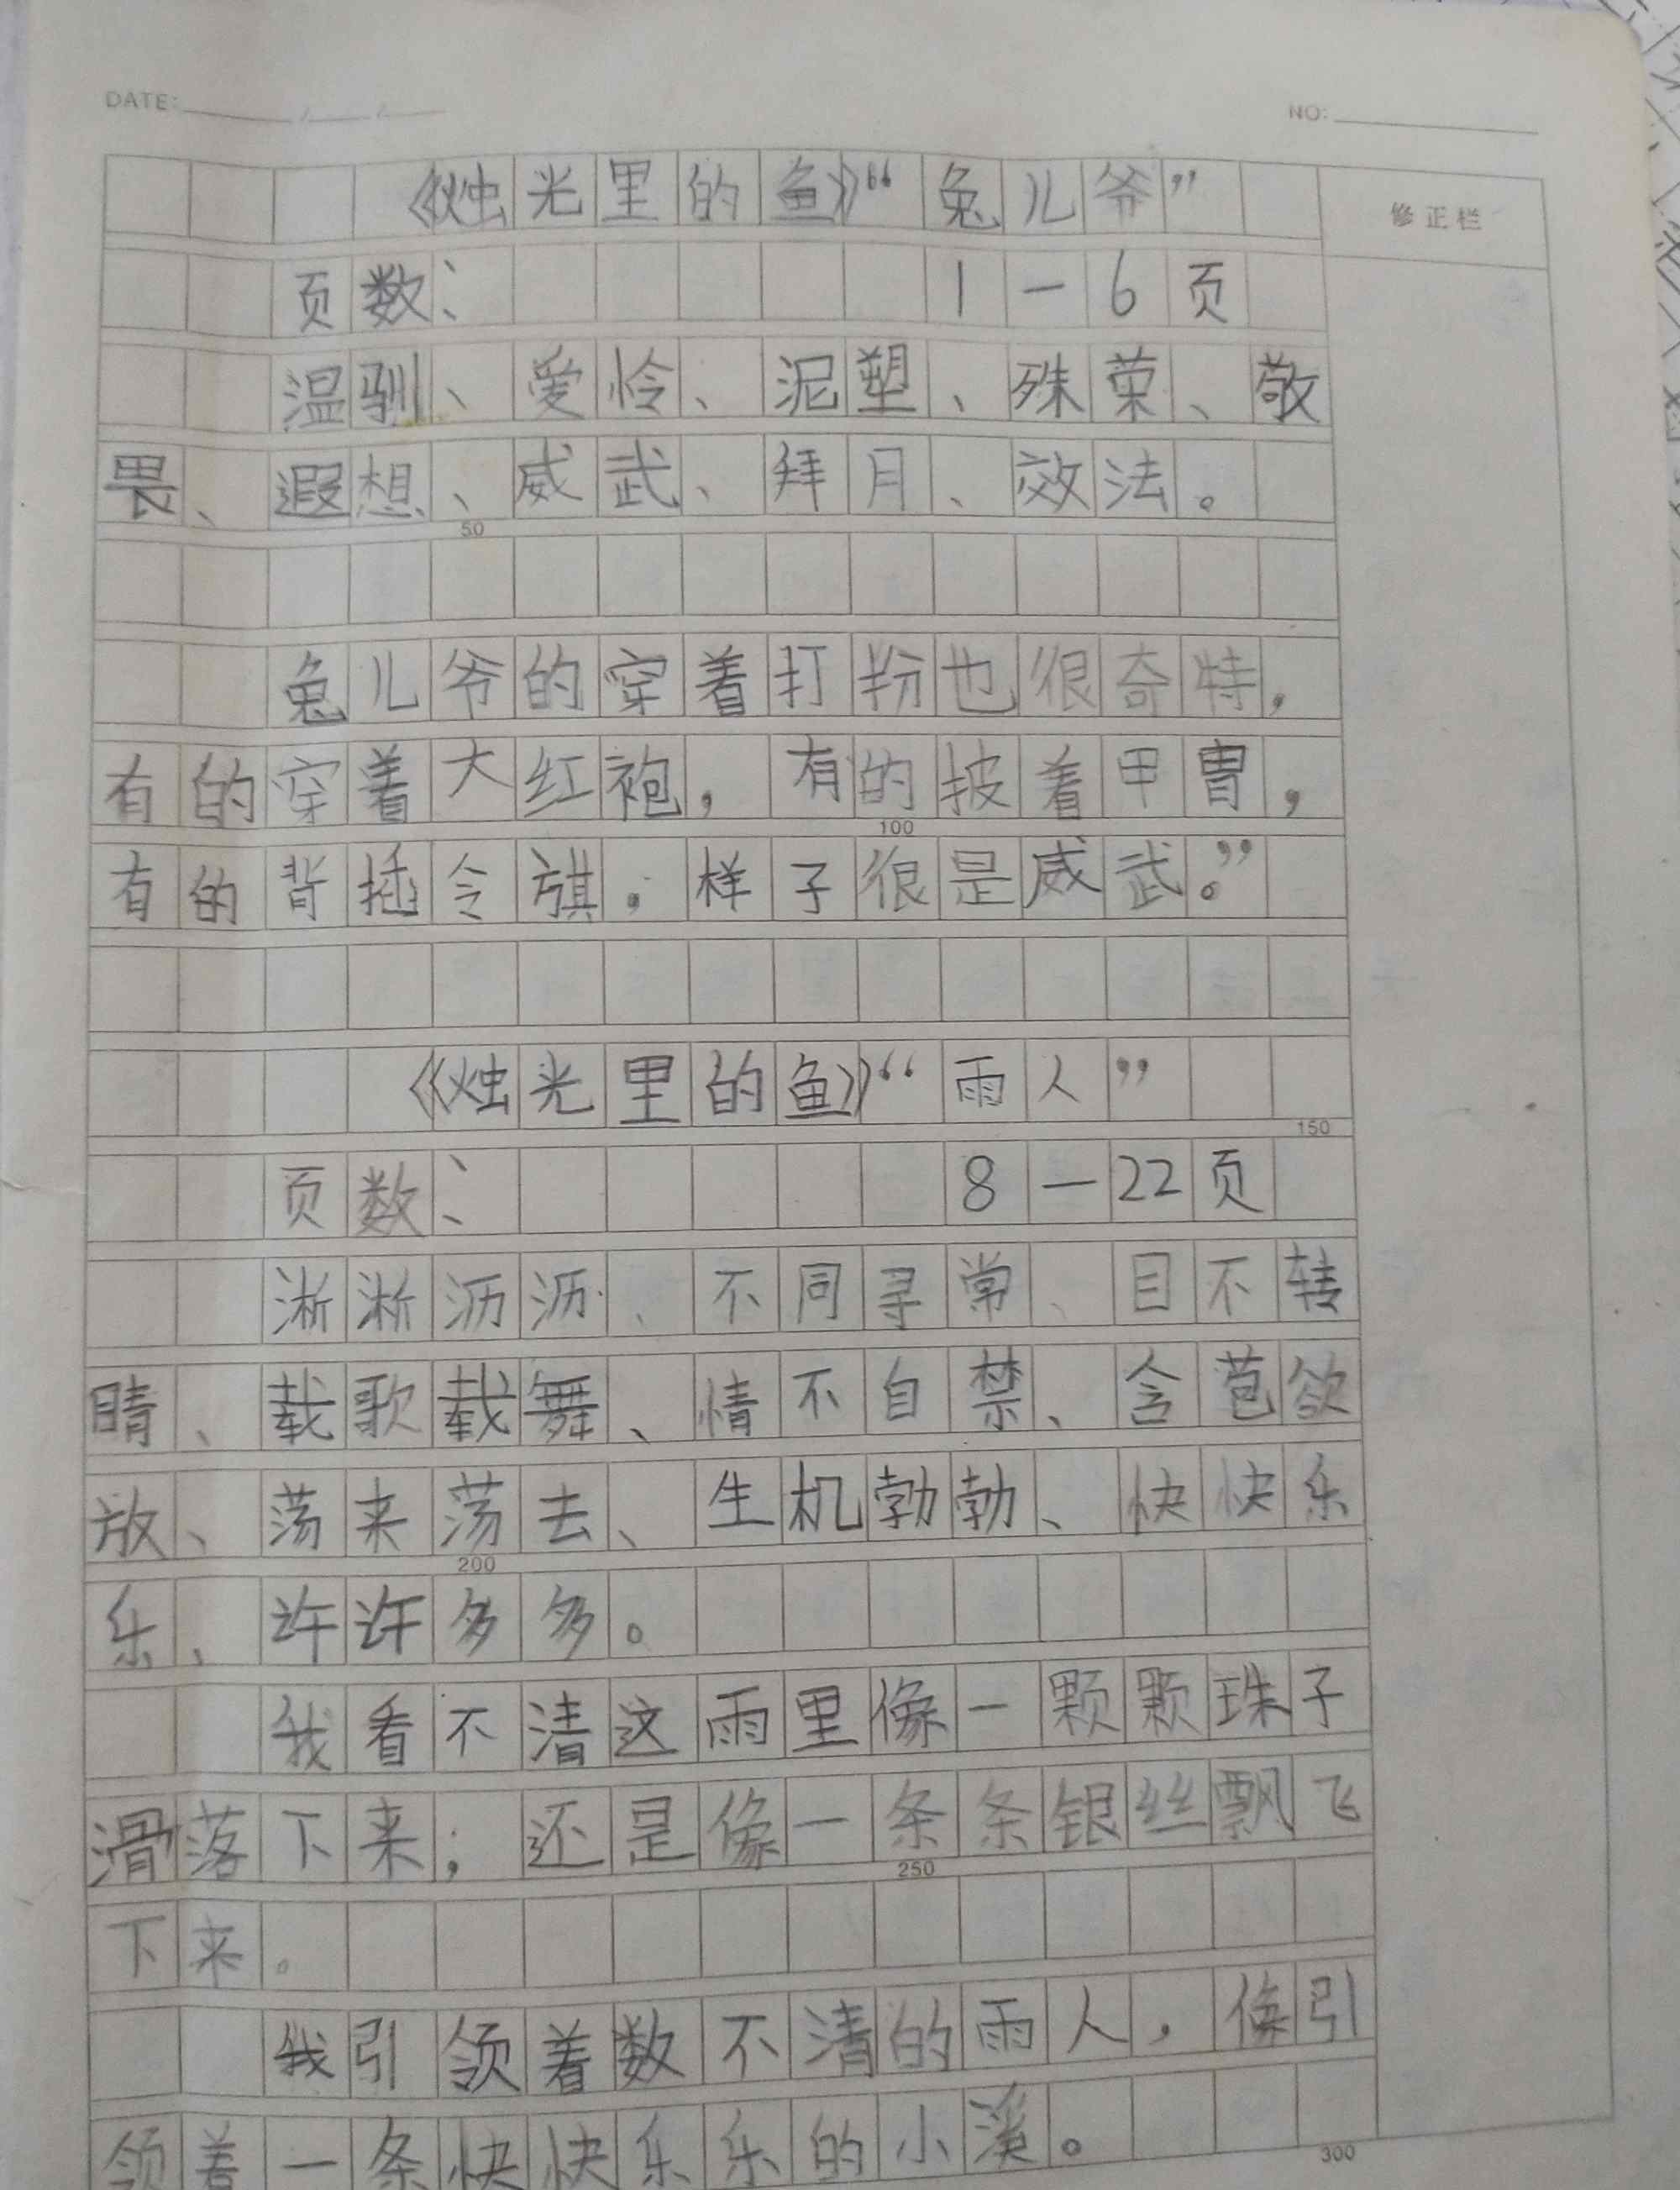 DATE: / /
NO:
《烛光里的鱼》“兔儿爷”
修正栏
页数: 1—6页
温驯、爱怜、泥塑、殊荣、敬
畏、遐想、威武、拜月、效法。
50
兔儿爷的穿着打扮也很奇特,
有的穿着大红袍,有的披着甲胄,
100
有的背插令旗,样子很是威武。”
《烛光里的鱼》“雨人”
150
页数: 8—22页
淅淅沥沥、不同寻常、目不转
睛、载歌载舞、情不自禁、含苞欲
放、荡来荡去、生机勃勃、快快乐
200
乐、许许多多。
我看不清这雨里像一颗颗珠子
滑落下来;还是像一条条银丝飘飞
250
下来。
我引领着数不清的雨人,像引
领着一条快快乐乐的小溪。
300